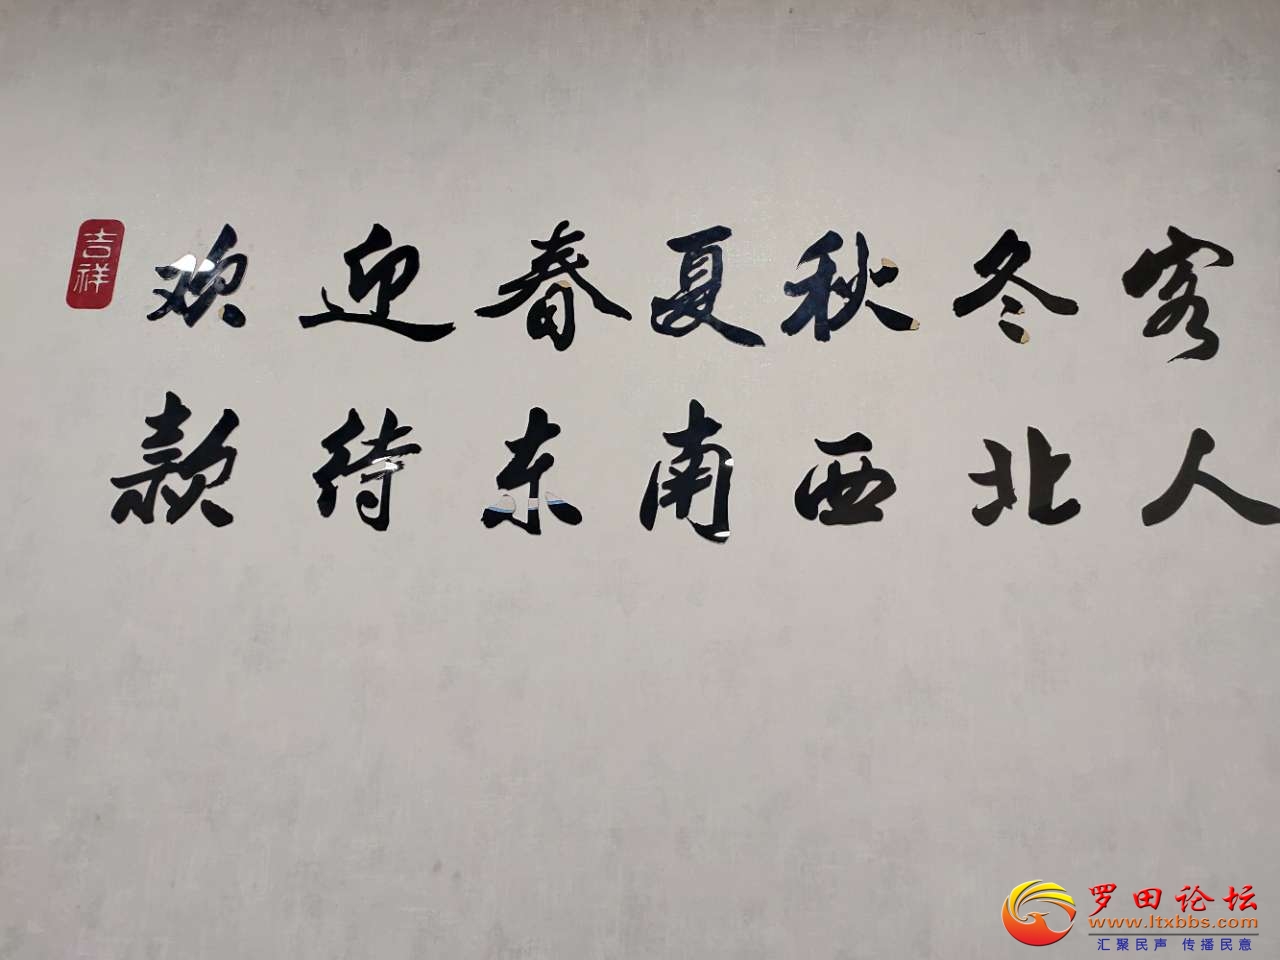 吉祥
欢迎春夏秋冬客
款待东南西北人
罗田论坛
www.ltxbbs.com
汇聚民声 传播民意